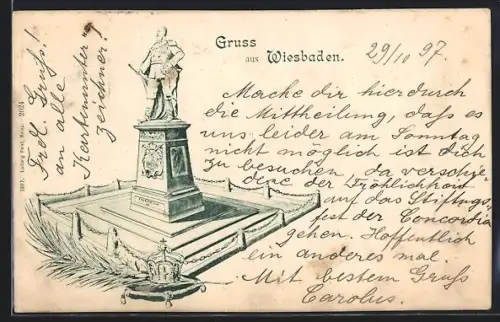 Gruss
aus Wiesbaden.
29/10 97.
Mache dir hierdurch
die Mittheilung, daß es
uns leider am Sonntag
nicht möglich ist dich
zu besuchen, da verschie
dene der Fröhlichkait
auf das Stiftungs
fest der Concordia
gehen. Hoffentlich
ein anderes mal.
Mit bestem Gruß
Carolus.
Frdl. Gruß!
an alle
Kartenunter
zeichner!
2024
1897.